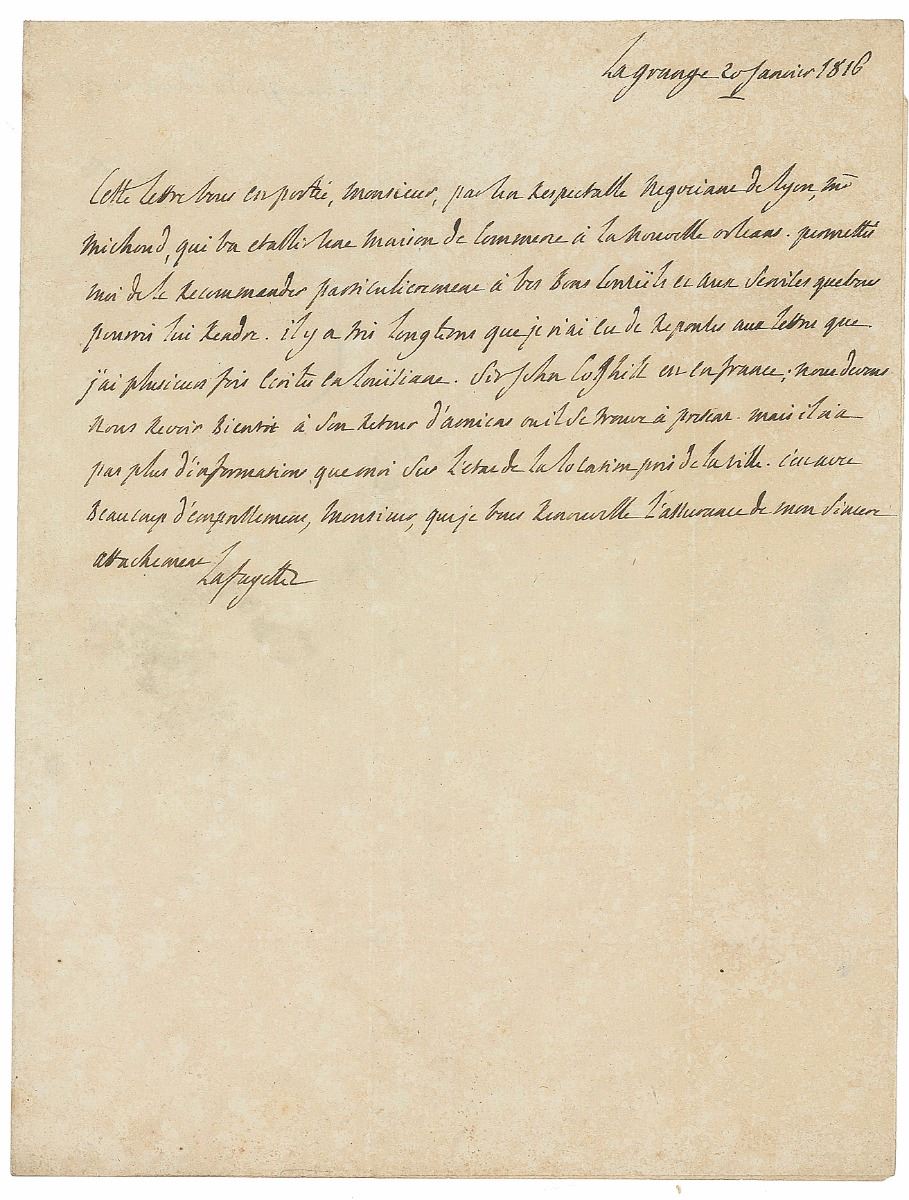 Lagrange 20 Janvier 1816
Cette lettre vous est portée, monsieur, par un Respectable Negociant de lyon, mr
michoud, qui va etablir une maison de Commerce à la nouvelle orleans. permettés
moi de le Recommander particulierement à vos Bons Conseils et aux Services que vous
pourrés lui Rendre. il y a très longtems que je n'ai eu de Reponses aux lettres que
j'ai plusieurs fois Ecrites en louïsiane. Sir John Coghill est en france; nous devons
nous Revoir Bientot à Son Retour d'amiens ou il Se trouve à present. mais il n'a
pas plus d'informations que moi Sur l'etat de la location près de la ville. c'est avec
Beaucoup d'empressement, monsieur, que je vous Renouvelle l'assurance de mon Sincere
attachement
Lafayette